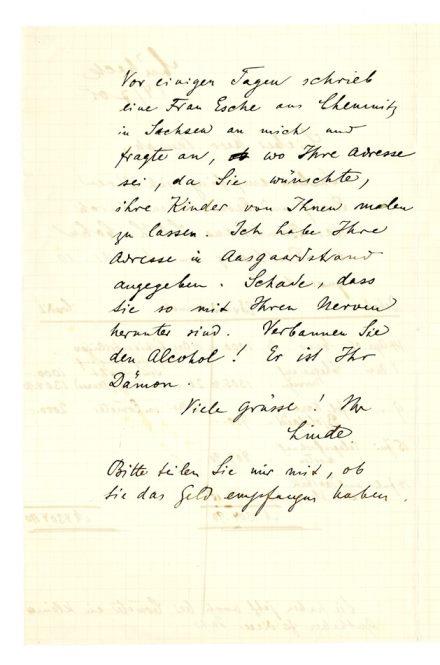 Vor einigen Tagen schrieb
eine Frau Esche aus Chemnitz
in Sachsen an mich und
fragte an, wo Ihre Adresse
sei, da Sie wünschte,
ihre Kinder von Ihnen malen
zu lassen. Ich habe Ihre
Adresse in Aasgaardstrand
angegeben. Schade, dass
Sie so mit Ihren Nerven
herunter sind. Verbannen Sie
den Alcohol! Er ist Ihr
Dämon.
Viele Grüsse! Ihr
Linde
Bitte teilen Sie mir mit, ob
Sie das Geld empfangen haben.